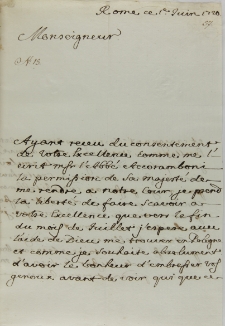 Rome ce 1er Juin 1720
Monseigneur
Ayant receu du consentement
de Votre Excellence comme me l'
ecrit Msr l'Abbé Accoramboni
la permission de sa majesté de
me rendre a notre Cour, je prend
la liberté de faire scavoir a
votre Excellence que vers la fin
du mois de Juillet j'espere avec
l'aide de Dieu me trouver en
et comme je souhaite absolument
d'avoir le bonheur d'embrasser vos
genoux avant de voir qui que ce